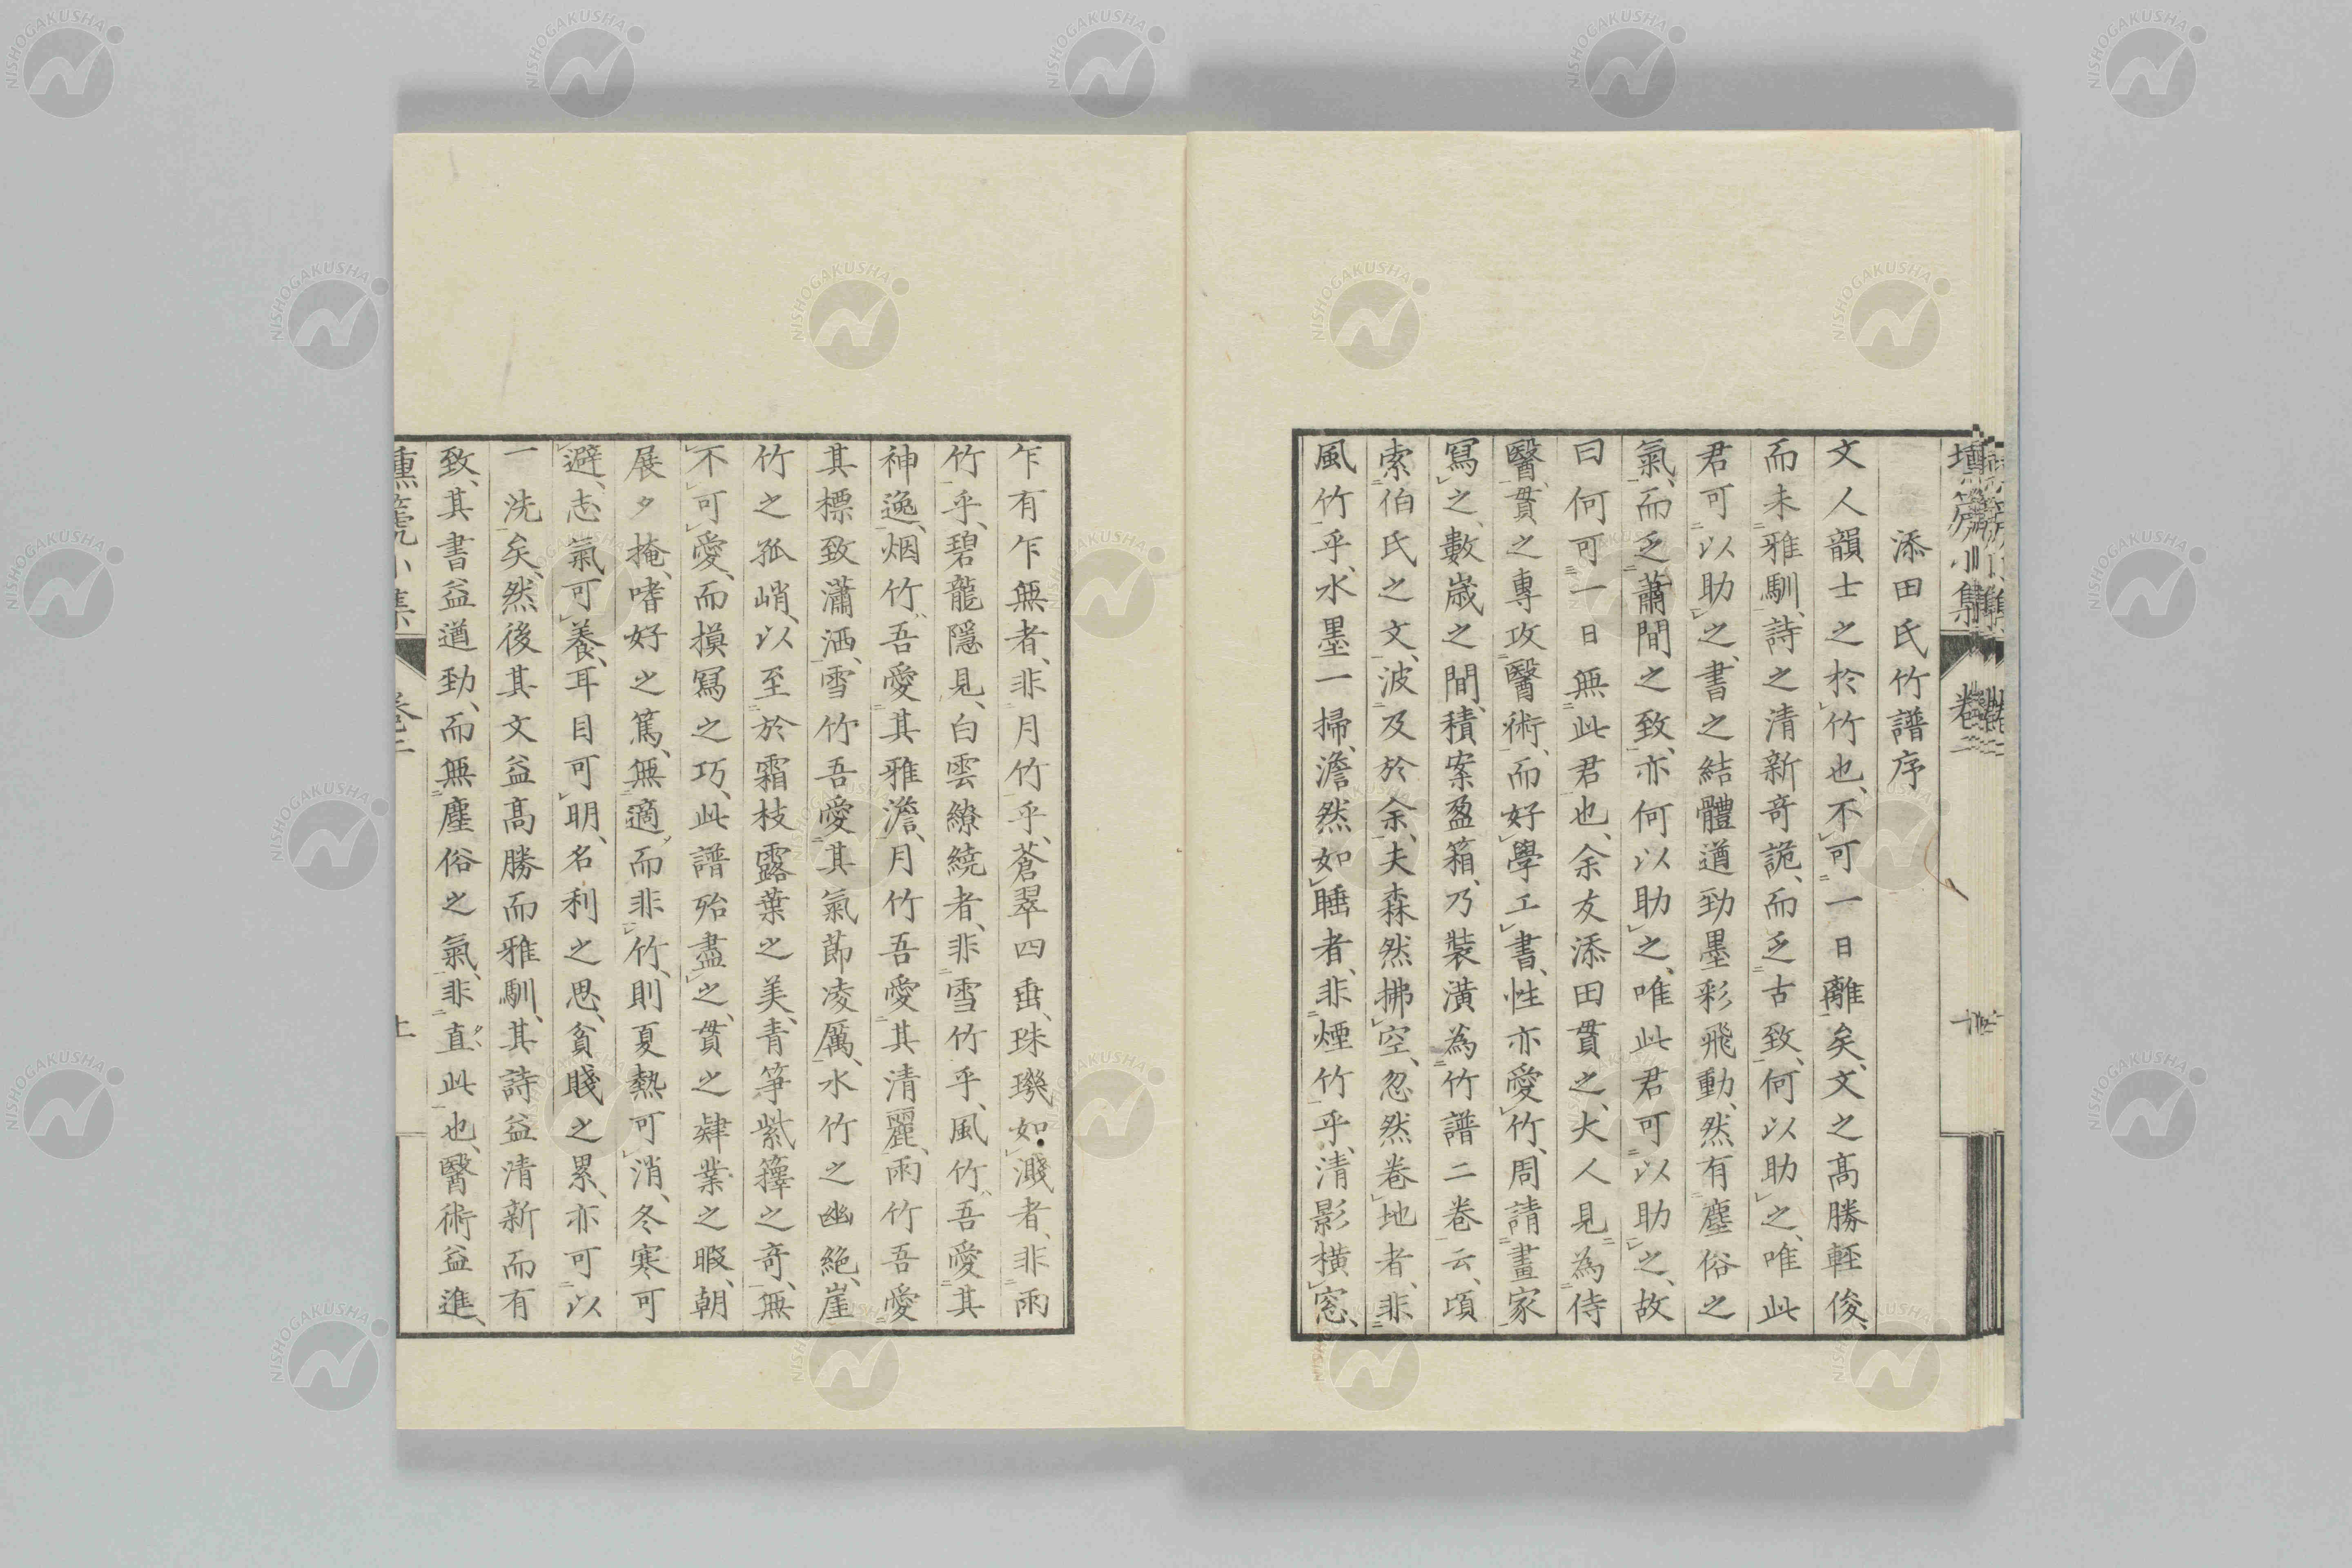 添田氏竹譜序
文人韻士之於竹也、不可一日離矣、文之高勝輕俊、
而未雅馴、詩之清新奇詭、而乏古致、何以助之、唯此
君可以助之、書之結體遒勁墨彩飛動、然有塵俗之
氣、而乏蕭間之致、亦何以助之、唯此君可以助之、故
曰何可一日無此君也、余友添田貫之、大人見為侍
醫、貫之專攻醫術、而好學工書、性亦愛竹、周請畫家
寫之、數歲之間、積案盈箱、乃裝潢為竹譜二卷云、頃
索伯氏之文、波及於余、夫森然拂空、忽然卷地者、非
風竹乎、水墨一掃、澹然如睡者、非煙竹乎、清影橫窓、
乍有乍無者、非月竹乎、蒼翠四垂、珠璣如濺者、非雨
竹乎、碧龍隱見、白雲繚繞者、非雪竹乎、風竹吾愛其
神逸、烟竹吾愛其雅澹、月竹吾愛其清麗、雨竹吾愛
其標致瀟洒、雪竹吾愛其氣節凌厲、水竹之幽絕、崖
竹之孤峭、以至於霜枝露葉之美、青筝紫籜之奇、無
不可愛、而摸寫之巧、此譜殆盡之、貫之肄業之暇、朝
展夕掩、嗜好之篤、無適而非竹、則夏熱可消、冬寒可
避、志氣可養、耳目可明、名利之思、貧賤之累、亦可以
一洗矣、然後其文益高勝而雅馴、其詩益清新而有
致、其書益遒勁、而無塵俗之氣、非直此也、醫術益進、